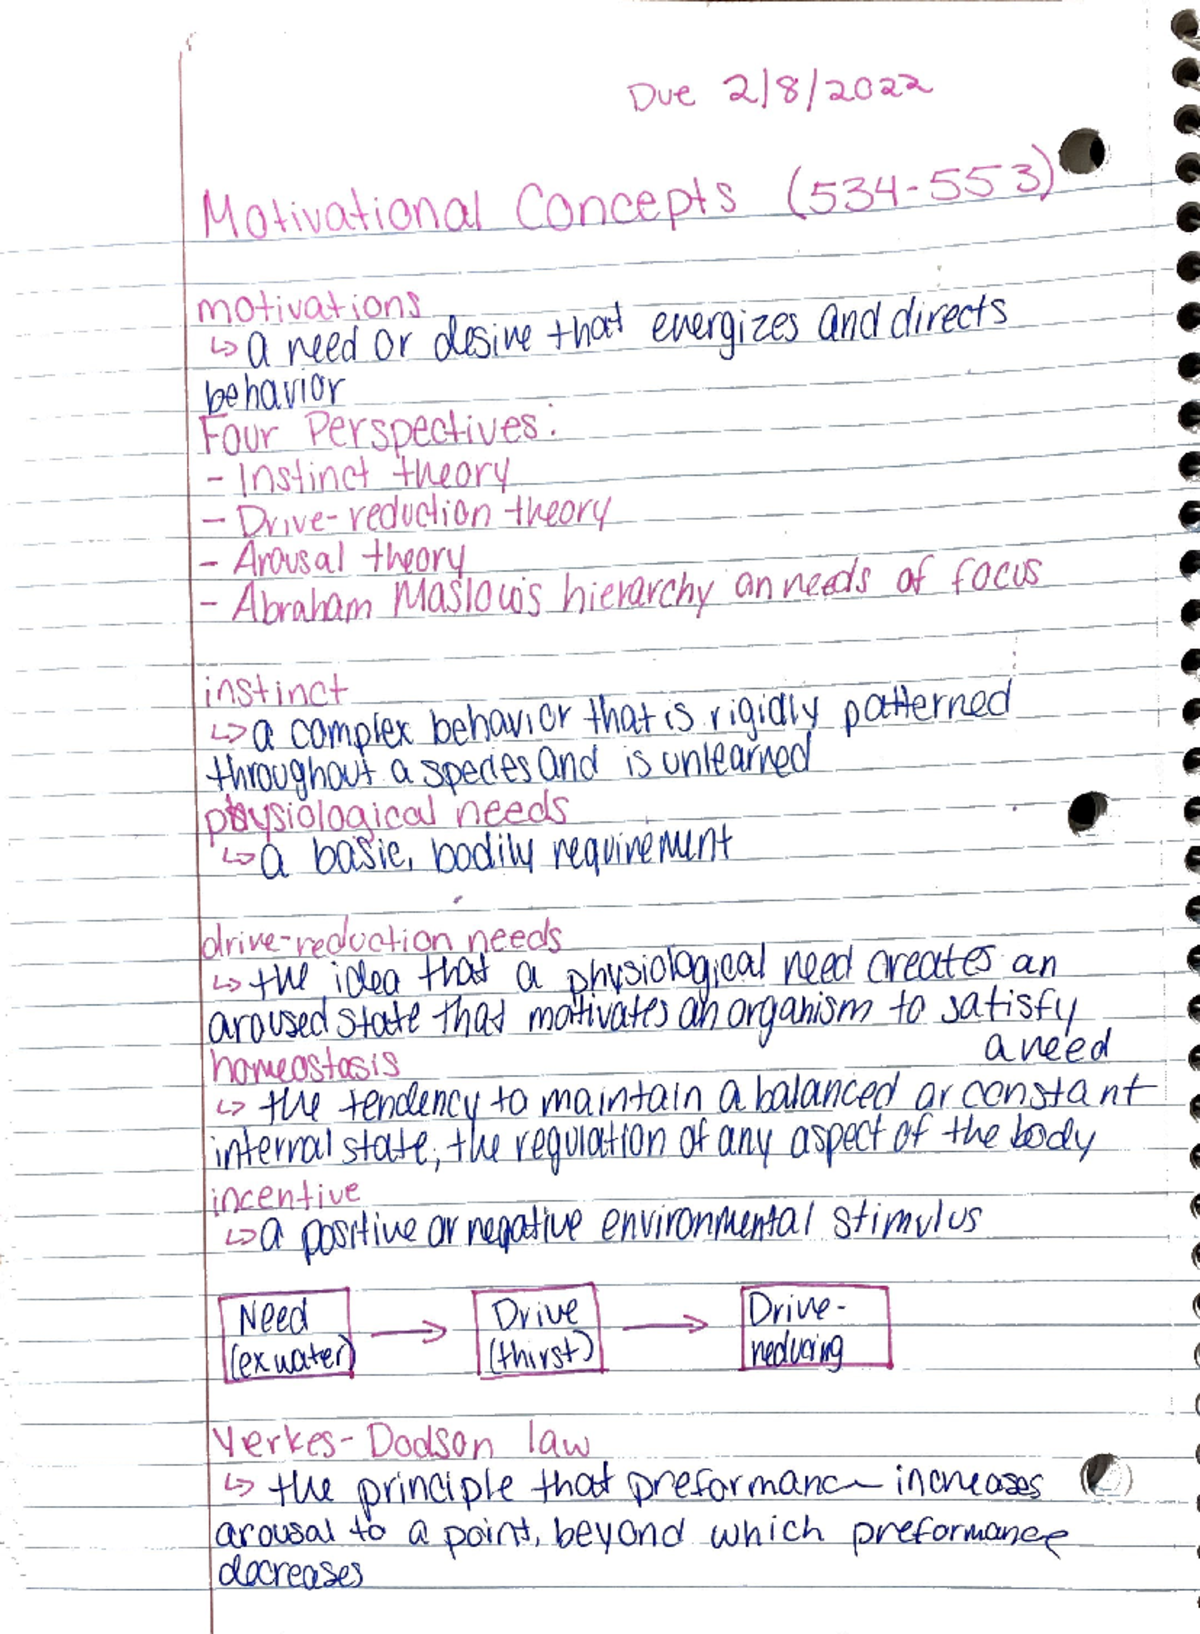 Due 2/8/2022
Motivational Concepts (534-553)
motivations
↳ a need or desire that energizes and directs
behavior
Four Perspectives:
- Instinct theory
- Drive-reduction theory
- Arousal theory
- Abraham Maslow's hierarchy an needs of focus
instinct
↳ a complex behavior that is rigidly patterned
throughout a species and is unlearned
physiological needs
↳ a basic, bodily requirement
drive-reduction needs
↳ the idea that a physiological need creates an
aroused state that motivates an organism to satisfy
a need
homeostasis
↳ the tendency to maintain a balanced or constant
internal state; the regulation of any aspect of the body
incentive
↳ a positive or negative environmental stimulus
Need → Drive → Drive-
(ex water) (thirst) reducing
Yerkes-Dodson law
↳ the principle that preformance increases
arousal to a point, beyond which preformance
decreases